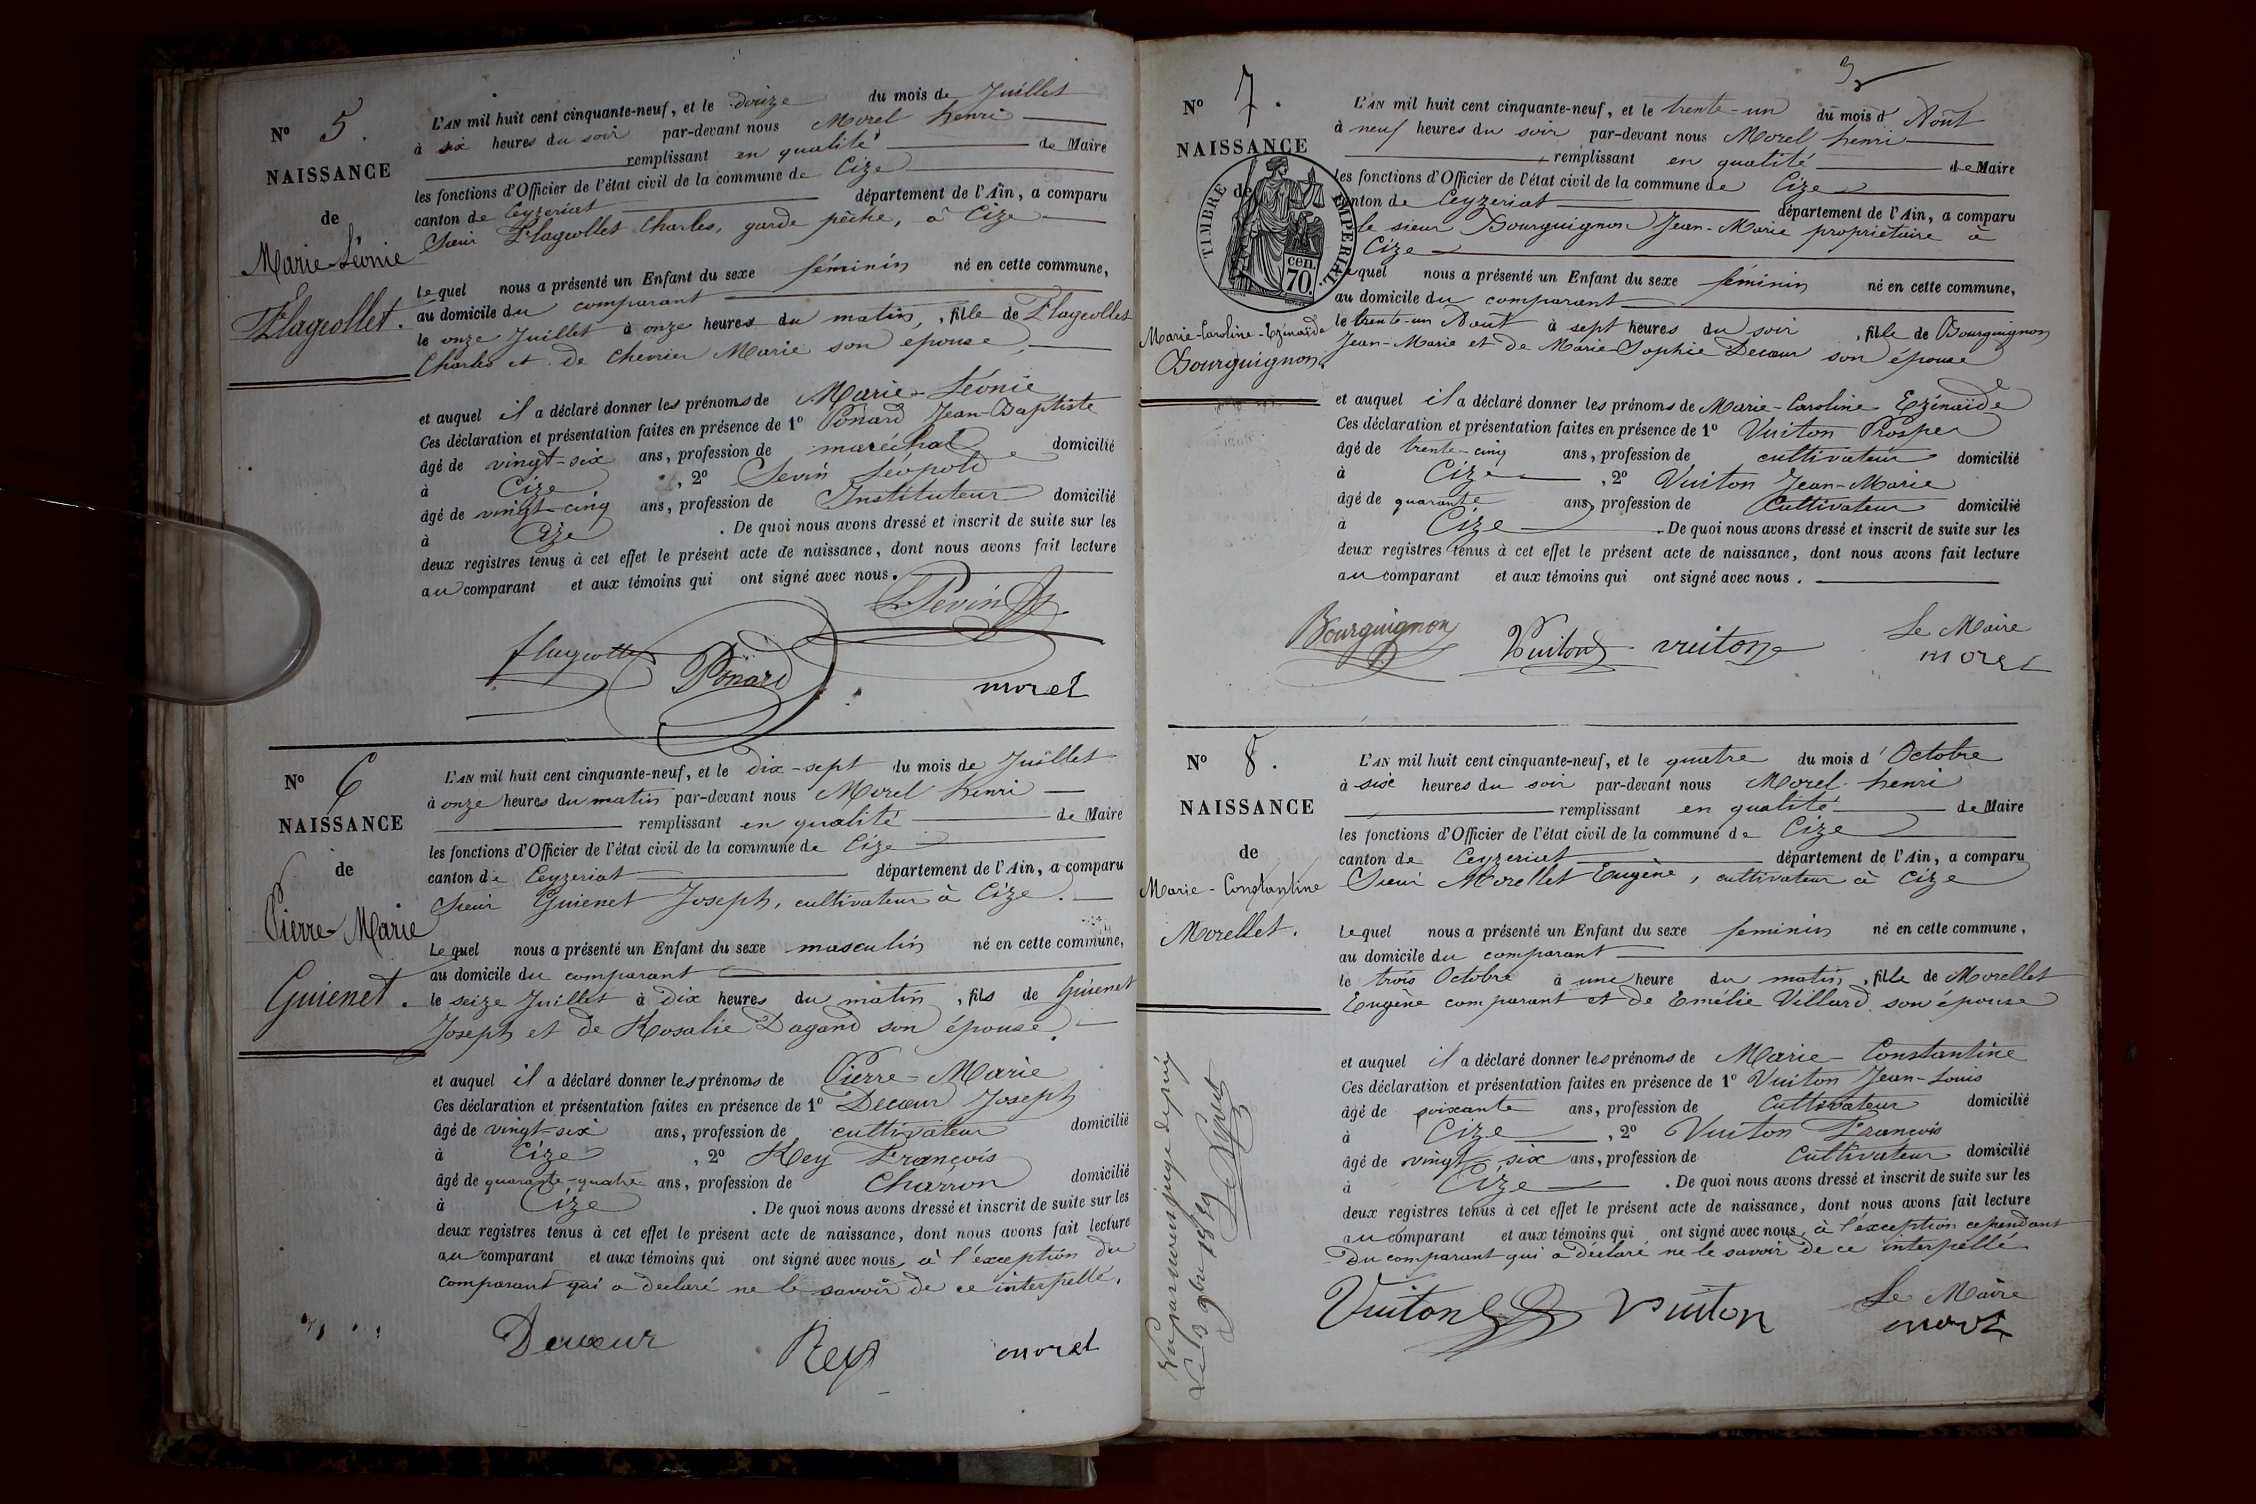 N° 5.
NAISSANCE
de
Marie-Léonie
Flageollet.
L'AN mil huit cent cinquante-neuf, et le douze du mois de Juillet
à six heures du soir par-devant nous Morel henri
remplissant en qualité de Maire
les fonctions d'Officier de l'état civil de la commune de Cize
canton de Ceyzeriat département de l'Ain, a comparu
Sieur Flageollet Charles, garde pêche, à Cize
Lequel nous a présenté un Enfant du sexe féminin né en cette commune,
au domicile du comparant
le onze Juillet à onze heures du matin, fille de Flageollet
Charles et de Chevrier Marie son épouse,
et auquel il a déclaré donner les prénoms de Marie-Léonie
Ces déclaration et présentation faites en présence de 1° Ponard Jean-Baptiste
âgé de vingt-six ans, profession de maréchal domicilié
à Cize, 2° Sevin Léopold
âgé de vingt-cinq ans, profession de Instituteur domicilié
à Cize. De quoi nous avons dressé et inscrit de suite sur les
deux registres tenus à cet effet le présent acte de naissance, dont nous avons fait lecture
au comparant et aux témoins qui ont signé avec nous.
L Sevin
flageollet
Ponard
morel
N° 6
NAISSANCE
de
Pierre-Marie
Guienet.
L'AN mil huit cent cinquante-neuf, et le dix-sept du mois de Juillet
à onze heures du matin par-devant nous Morel henri
remplissant en qualité de Maire
les fonctions d'Officier de l'état civil de la commune de Cize
canton de Ceyzeriat département de l'Ain, a comparu
Sieur Guienet Joseph, cultivateur à Cize.
Lequel nous a présenté un Enfant du sexe masculin né en cette commune,
au domicile du comparant
le seize Juillet à dix heures du matin, fils de Guienet
Joseph et de Rosalie Dagand son épouse.
et auquel il a déclaré donner les prénoms de Pierre-Marie
Ces déclaration et présentation faites en présence de 1° Decœur Joseph
âgé de vingt-six ans, profession de cultivateur domicilié
à Cize, 2° Rey François
âgé de quarante-quatre ans, profession de Charron domicilié
à Cize. De quoi nous avons dressé et inscrit de suite sur les
deux registres tenus à cet effet le présent acte de naissance, dont nous avons fait lecture
au comparant et aux témoins qui ont signé avec nous, à l'éxception du
comparant qui a declaré ne le savoir de ce interpellé.
Decœur
Rey
morel
3
N° 7.
NAISSANCE
de
TIMBRE IMPERIAL
cen.
70.
Marie-Caroline-Ezénaïde
Bourguignon.
L'AN mil huit cent cinquante-neuf, et le trente-un du mois d'Août
à neuf heures du soir par-devant nous Morel henri
remplissant en qualité de Maire
les fonctions d'Officier de l'état civil de la commune de Cize
canton de Ceyzeriat département de l'Ain, a comparu
le sieur Bourguignon Jean-Marie propriétaire à
Cize
Lequel nous a présenté un Enfant du sexe féminin né en cette commune,
au domicile du comparant
le trente-un Août à sept heures du soir, fille de Bourguignon
Jean-Marie et de Marie Sophie Decœur son épouse
et auquel il a déclaré donner les prénoms de Marie-Caroline Ezénaïde
Ces déclaration et présentation faites en présence de 1° Vuiton Prosper
âgé de trente-cinq ans, profession de cultivateur domicilié
à Cize, 2° Vuiton Jean-Marie
âgé de quarante ans, profession de Cultivateur domicilié
à Cize. De quoi nous avons dressé et inscrit de suite sur les
deux registres tenus à cet effet le présent acte de naissance, dont nous avons fait lecture
au comparant et aux témoins qui ont signé avec nous.
Bourguignon Vuiton vuiton Le Maire
morel
N° 8.
NAISSANCE
de
Marie-Constantine
Morellet.
L'AN mil huit cent cinquante-neuf, et le quatre du mois d'Octobre
à six heures du soir par-devant nous Morel henri
remplissant en qualité de Maire
les fonctions d'Officier de l'état civil de la commune de Cize
canton de Ceyzeriat département de l'Ain, a comparu
Sieur Morellet Eugène, cultivateur à Cize
Lequel nous a présenté un Enfant du sexe feminin né en cette commune,
au domicile du comparant
le trois Octobre à une heure du matin, fille de Morellet
Eugène comparant et de Emélie Villard son épouse
et auquel il a déclaré donner les prénoms de Marie-Constantine
Ces déclaration et présentation faites en présence de 1° Vuiton Jean-Louis
âgé de soixante ans, profession de Cultivateur domicilié
à Cize, 2° Vuiton François
âgé de vingt-six ans, profession de Cultivateur domicilié
à Cize. De quoi nous avons dressé et inscrit de suite sur les
deux registres tenus à cet effet le présent acte de naissance, dont nous avons fait lecture
au comparant et aux témoins qui ont signé avec nous, à l'éxception cependant
du comparant qui a déclaré ne le savoir de ce interpellé
Vuiton vuiton Le Maire
morel
Vu par nous juge de paix
Le 13 9bre 1859